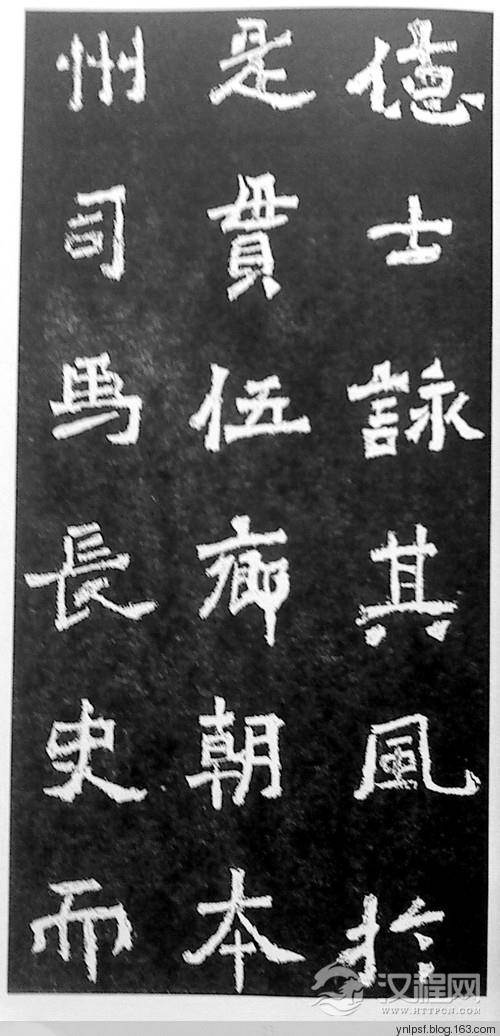 德士詠其風於
是貫伍鄉朝本
州司馬長史而
汉程网
WWW.HTTPCN.COM
ynlpsf.blog.163.com